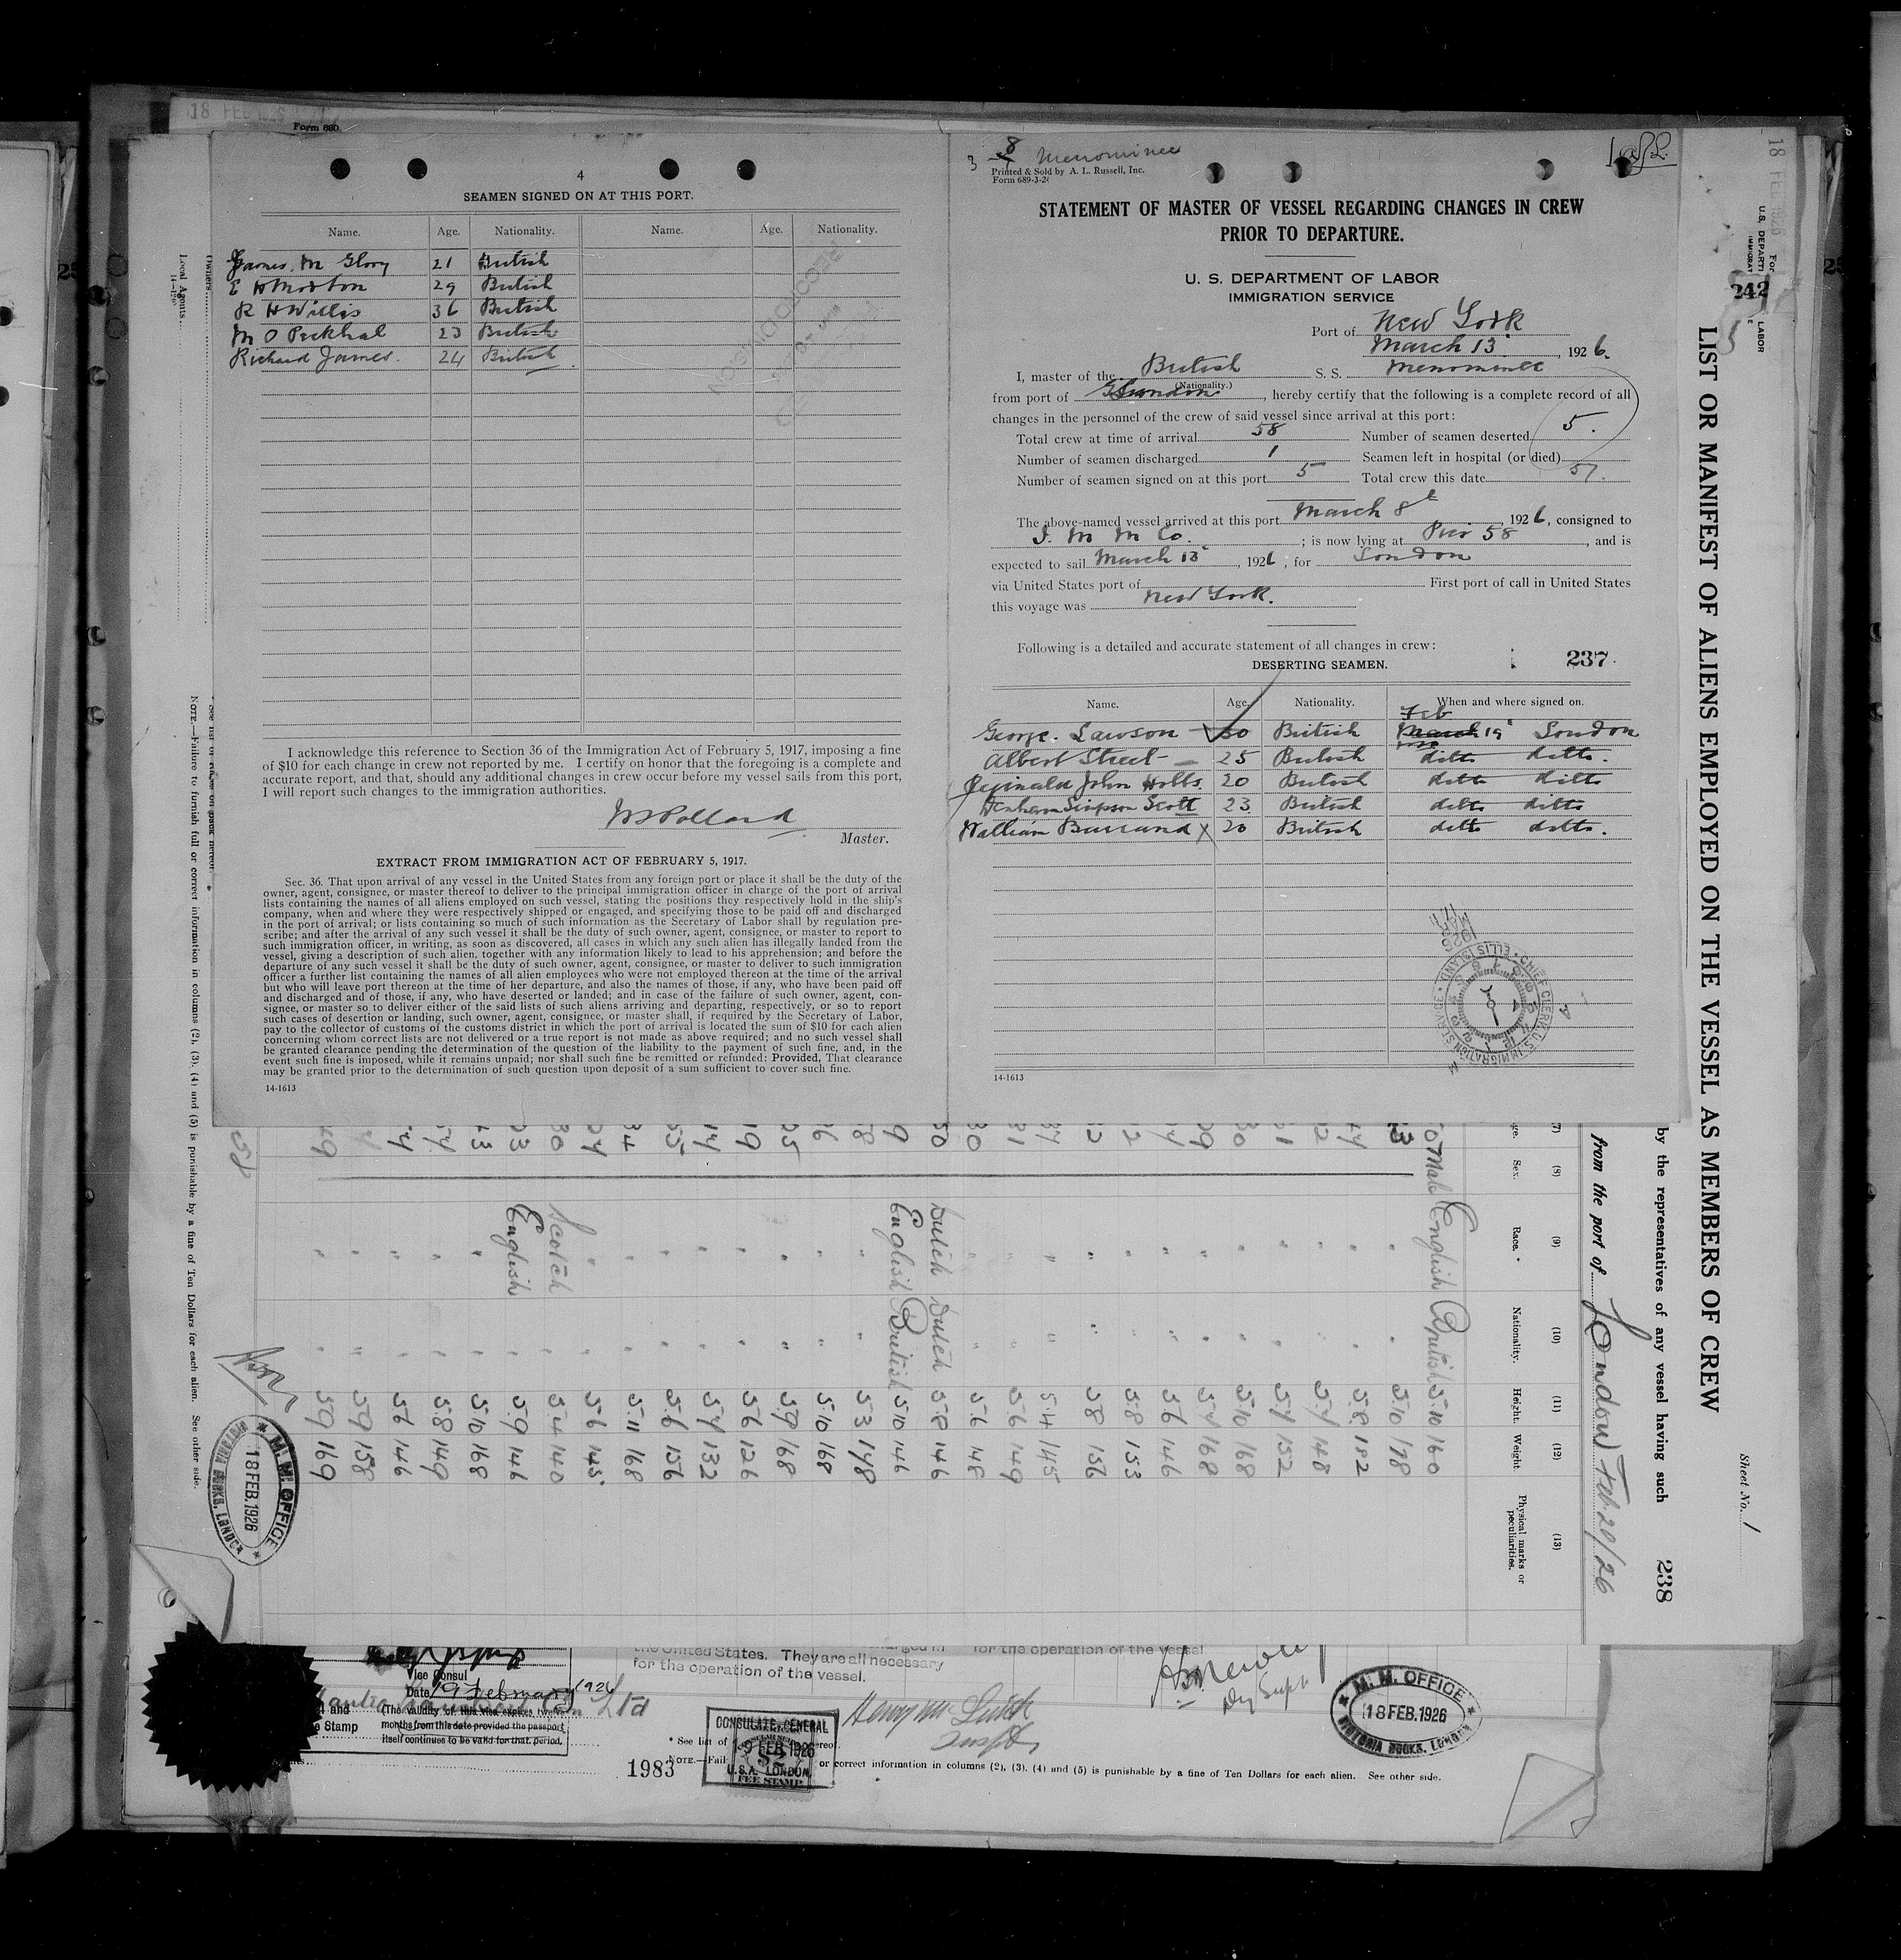 18 FEB 1926
Form 680
4
SEAMEN SIGNED ON AT THIS PORT.
Name. Age. Nationality. Name. Age. Nationality.
James. M Glory 21 British
E W Morton 29 British
R H Willis 36 British
M O Peckhal 23 British
Richard James. 24 British
I acknowledge this reference to Section 36 of the Immigration Act of February 5, 1917, imposing a fine
of $10 for each change in crew not reported by me. I certify on honor that the foregoing is a complete and
accurate report, and that, should any additional changes in crew occur before my vessel sails from this port,
I will report such changes to the immigration authorities.
Pollard
Master.
EXTRACT FROM IMMIGRATION ACT OF FEBRUARY 5, 1917.
Sec. 36. That upon arrival of any vessel in the United States from any foreign port or place it shall be the duty of the
owner, agent, consignee, or master thereof to deliver to the principal immigration officer in charge of the port of arrival
lists containing the names of all aliens employed on such vessel, stating the positions they respectively hold in the ship's
company, when and where they were respectively shipped or engaged, and specifying those to be paid off and discharged
in the port of arrival; or lists containing so much of such information as the Secretary of Labor shall by regulation pre-
scribe; and after the arrival of any such vessel it shall be the duty of such owner, agent, consignee, or master to report to
such immigration officer, in writing, as soon as discovered, all cases in which any such alien has illegally landed from the
vessel, giving a description of such alien, together with any information likely to lead to his apprehension; and before the
departure of any such vessel it shall be the duty of such owner, agent, consignee, or master to deliver to such immigration
officer a further list containing the names of all alien employees who were not employed thereon at the time of the arrival
but who will leave port thereon at the time of her departure, and also the names of those, if any, who have been paid off
and discharged and of those, if any, who have deserted or landed; and in case of the failure of such owner, agent, con-
signee, or master so to deliver either of the said lists of such aliens arriving and departing, respectively, or so to report
such cases of desertion or landing, such owner, agent, consignee, or master shall, if required by the Secretary of Labor,
pay to the collector of customs of the customs district in which the port of arrival is located the sum of $10 for each alien
concerning whom correct lists are not delivered or a true report is not made as above required; and no such vessel shall
be granted clearance pending the determination of the question of the liability to the payment of such fine, and, in the
event such fine is imposed, while it remains unpaid; nor shall such fine be remitted or refunded: Provided, That clearance
may be granted prior to the determination of such question upon deposit of a sum sufficient to cover such fine.
14-1613
3 8 Menominee
Printed & Sold by A. L. Russell, Inc.
Form 689-3-2
STATEMENT OF MASTER OF VESSEL REGARDING CHANGES IN CREW
PRIOR TO DEPARTURE.
U. S. DEPARTMENT OF LABOR
IMMIGRATION SERVICE
Port of New York
March 13, 1926.
I, master of the British S. S. Menominee
(Nationality.)
from port of London, hereby certify that the following is a complete record of all
changes in the personnel of the crew of said vessel since arrival at this port:
Total crew at time of arrival 58 Number of seamen deserted 5.
Number of seamen discharged 1 Seamen left in hospital (or died)
Number of seamen signed on at this port 5 Total crew this date 57.
The above-named vessel arrived at this port March 8, 1926, consigned to
I. M M Co. ; is now lying at Pier 58, and is
expected to sail March 13, 1926 ; for London
via United States port of First port of call in United States
this voyage was New York.
Following is a detailed and accurate statement of all changes in crew:
DESERTING SEAMEN. 237
Name. Age. Nationality. When and where signed on.
Feb
George. Lawson 30 British March 19 London
Albert Street 25 British ditto ditto.
Reginald John Hobbs 20 British ditto ditto
Denham Simpson Scott 23 British ditto ditto
William Burrand X 20 British ditto ditto.
CHIEF CLERK U.S. IMMIGRATION SERVICE ELLIS ISLAND
14-1613
18 FEB 1926
U. S. DEPARTI
LABOR
242
LIST OR MANIFEST OF ALIENS EMPLOYED ON THE VESSEL AS MEMBERS OF CREW
Sheet No. 1
by the representatives of any vessel having such
238
from the port of London Feb. 20/26
(8) (9) (10) (11) (12) (13)
Sex. Race. * Nationality. Height. Weight. Physical marks or peculiarities.
Male English British 5.10 160
5.10 178
5.8 182
5.7 148
5.7 152
5.10 168
5.7 168
5.6 146
5.8 153
5.8 156
5.4 145
5.6 149
5.6 148
Dutch Dutch 5.8 146
English British 5.10 146
5.3 148
5.10 168
5.9 168
5.6 126
5.7 132
5.6 156
5.11 168
5.6 145
Scotch 5.4 140
English 5.9 146
5.10 168
5.8 149
5.6 146
5.9 158
5.9 169
Owners
Local Agents
NOTE.—Failure to furnish full or correct information in columns (2), (3), (4) and (5) is punishable by a fine of Ten Dollars for each alien. See other side.
I.M.M. OFFICE
18 FEB. 1926
VICTORIA DOCKS, LONDON
Vice Consul
Date 19 February 1926
(The validity of this visa expires twelve
months from this date provided the passport
itself continues to be valid for that period.
and
Stamp
Ltd
the United States. They are all necessary
for the operation of the vessel.
for the operation of the vessel
CONSULATE GENERAL
19 FEB. 1926
U.S.A. LONDON
$2
FEE STAMP
1983
* See list of
NOTE.—Fail or correct information in columns (2), (3), (4) and (5) is punishable by a fine of Ten Dollars for each alien. See other side.
I.M.M. OFFICE
18 FEB. 1926
VICTORIA DOCKS, LONDON